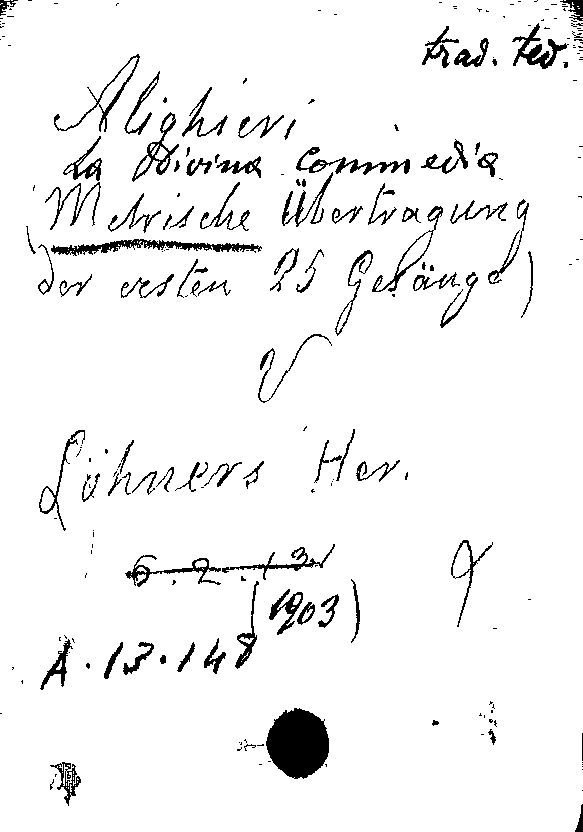 trad. ted.
Alighieri
La Divina Commedia
(Metrische Übertragung
der ersten 25 Gesänge)
V
Löhners Her.
6.2.13.
(1903)
A.13.148